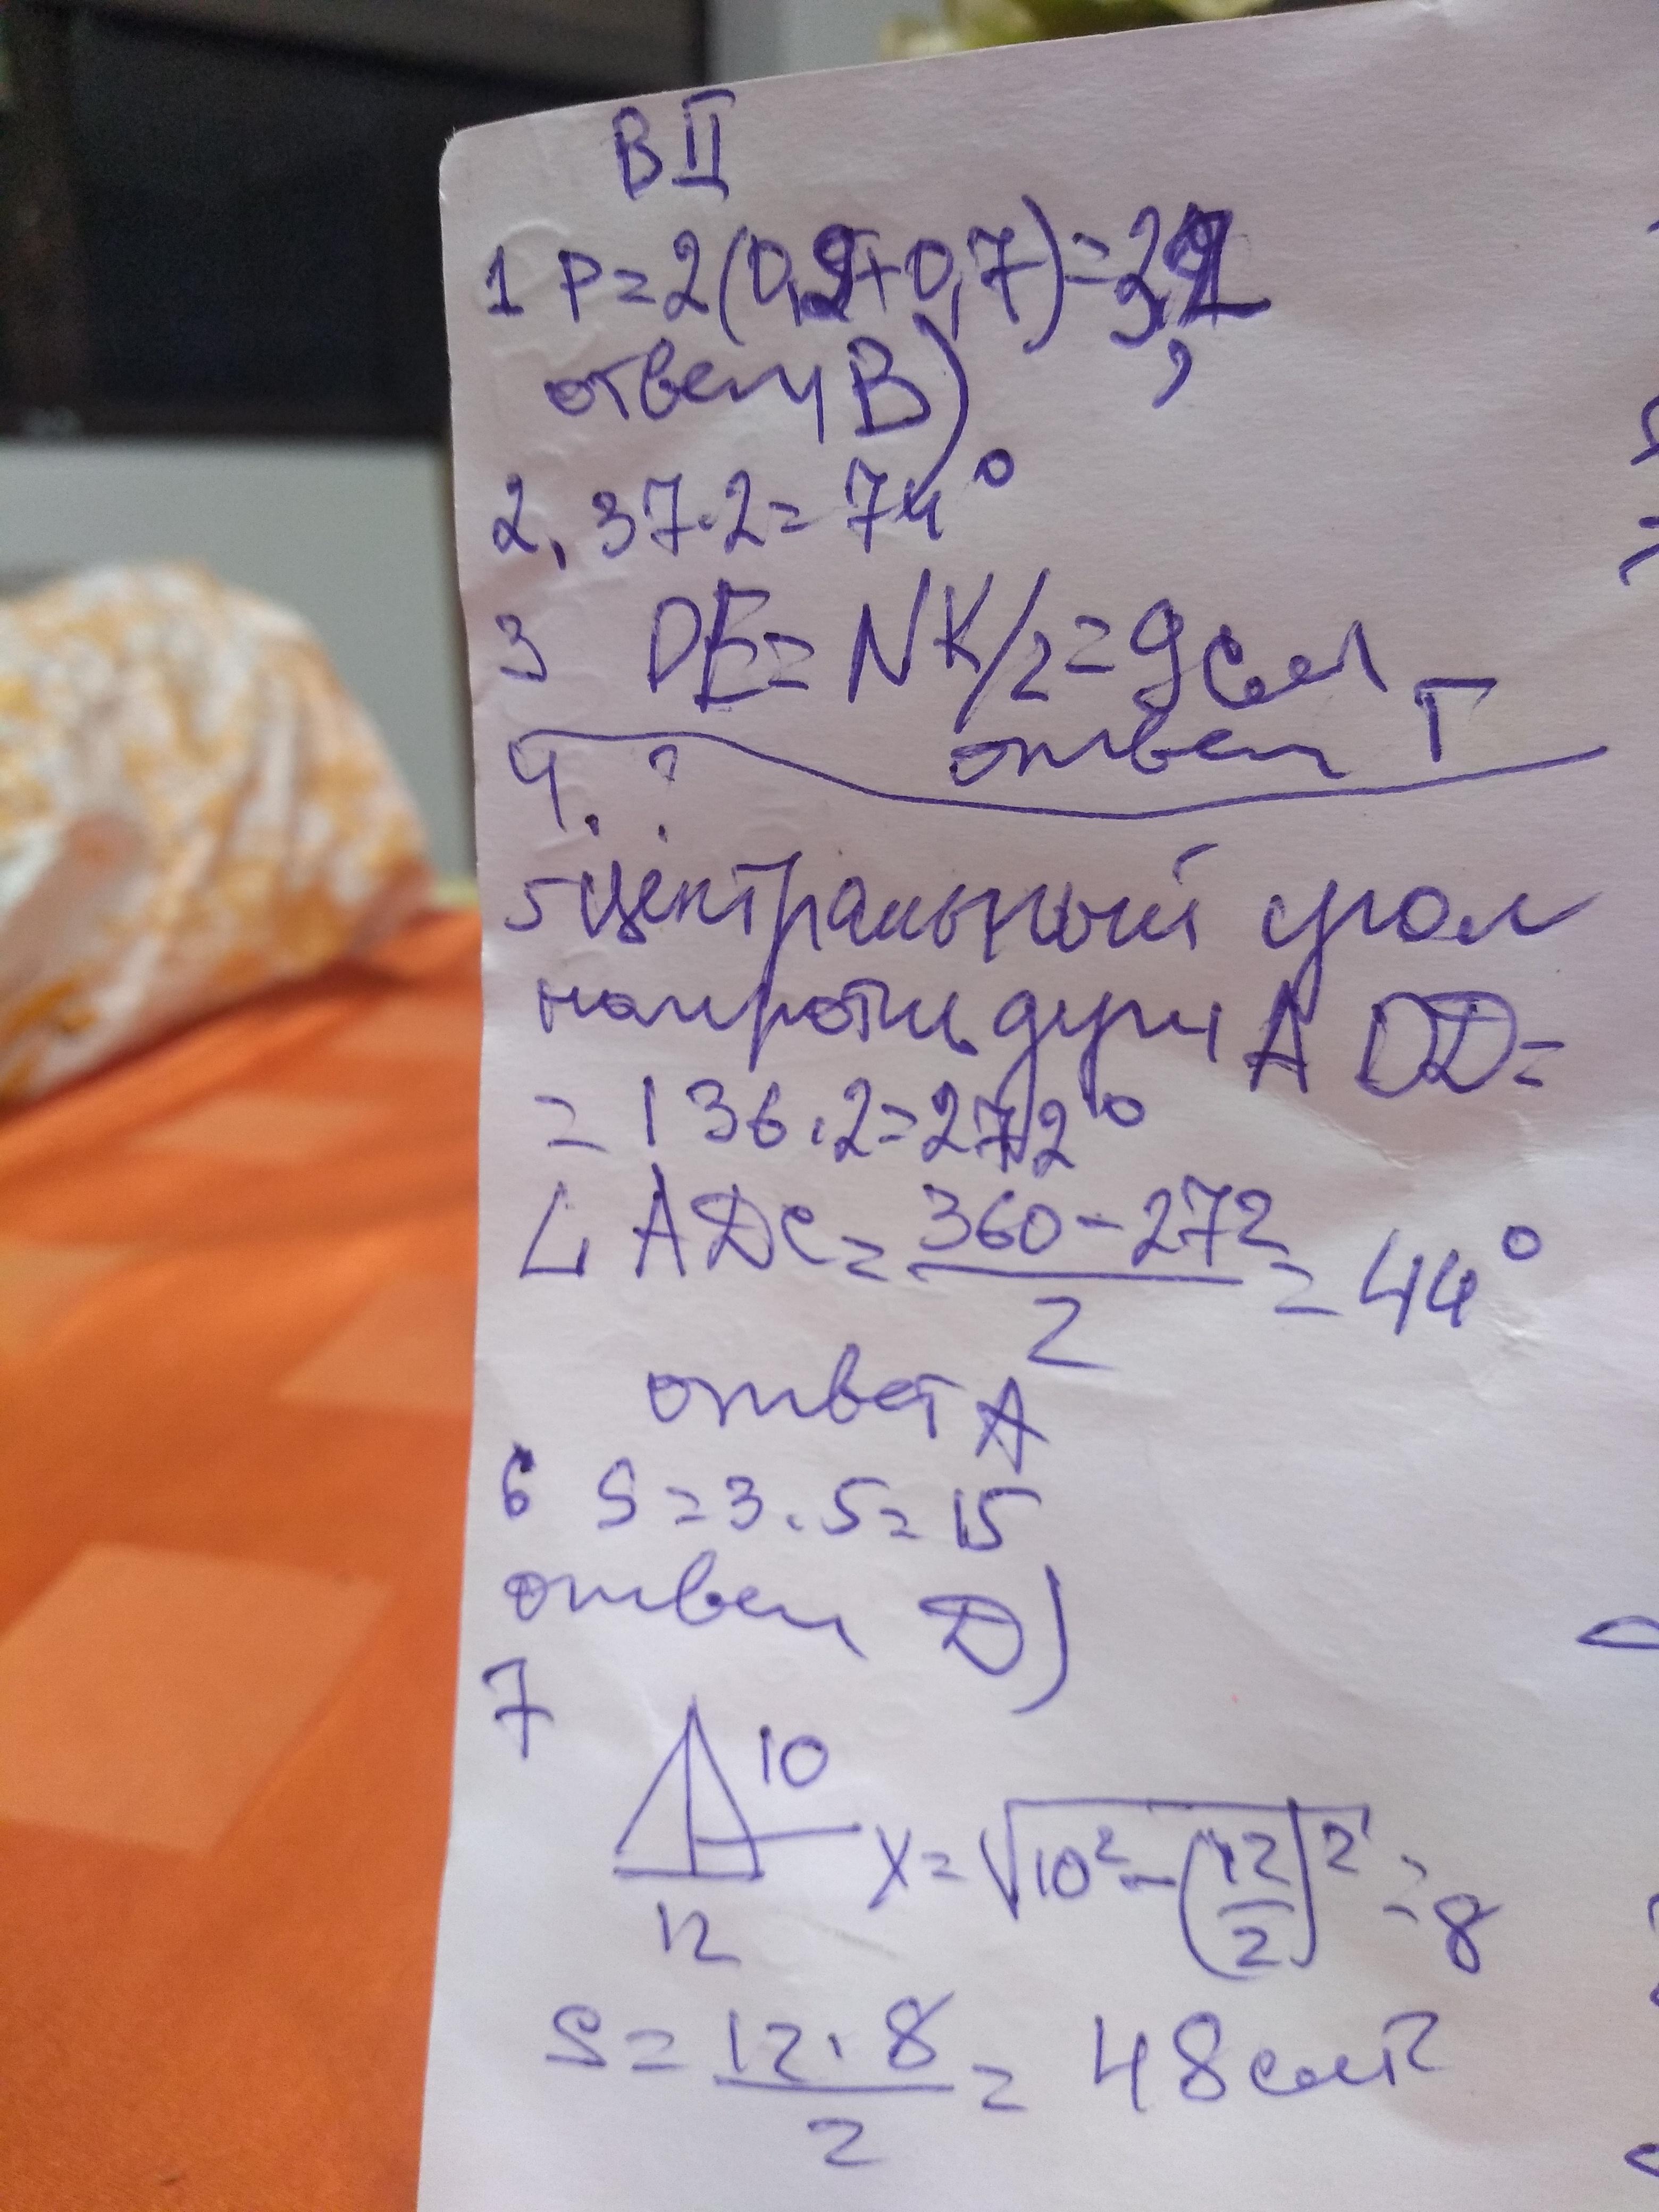 В II
1 P=2(0,9+0,7)=3,2
ответ В)
2. 37·2=74°
3 DE=NK/2=9см
ответ Г
4. ?
5 Центральный угол
напротив дуги A DD=
= 136·2=272°
∠ ADC= 360-272 / 2 = 44°
ответ А
6 S=3·5=15
ответ D)
7
10
x=√10²-(12/2)²=8
12
S= 12·8 / 2 = 48см²